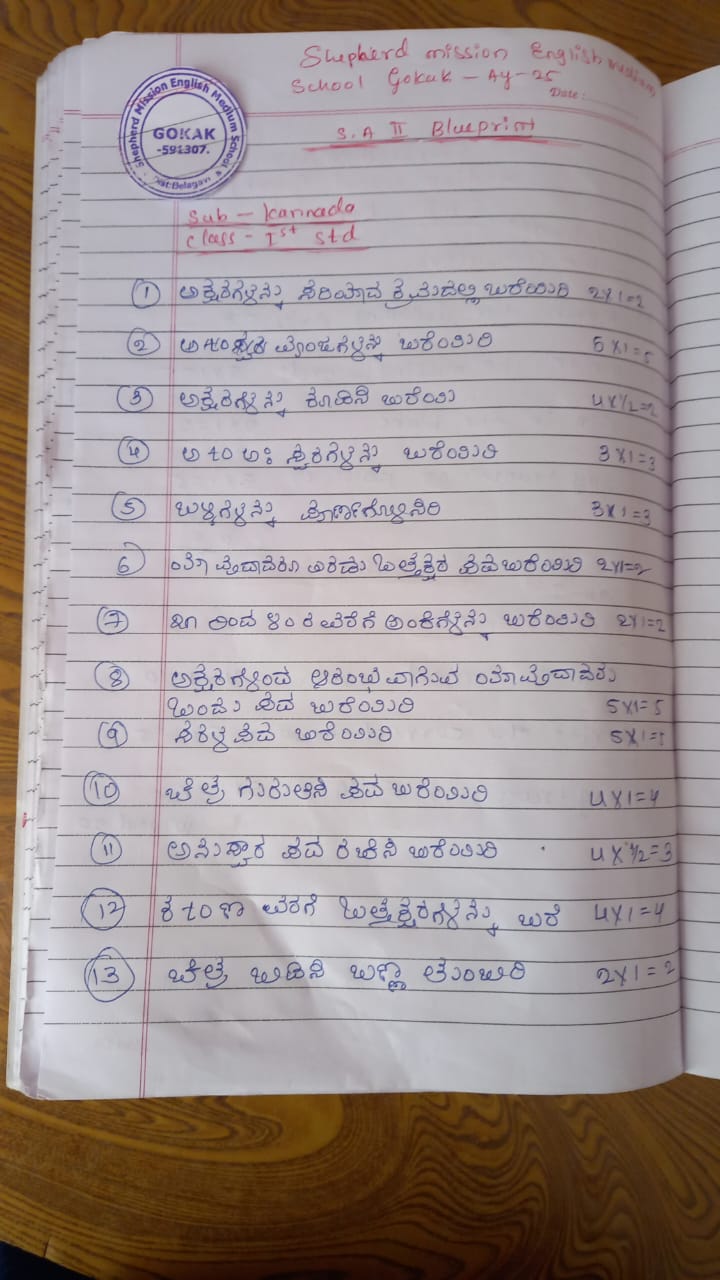 Shepherd mission English Medium
School Gokak - Ay-25
Date:
Shepherd Mission English Medium School
GOKAK
-591307.
Dist:Belagavi
S.A II Blueprint
Sub - Kannada
Class - Ist Std
1 ಅಕ್ಷರಗಳನ್ನು ಸರಿಯಾದ ಕ್ರಮದಲ್ಲಿ ಬರೆಯಿರಿ 2x1=2
2 ಬರೆಯಿರಿ 5x1=5
3 ಅಕ್ಷರಗಳನ್ನು ಕೂಡಿಸಿ ಬರೆಯಿರಿ 4x1/2=2
4 ಅ to ಅಃ ಸ್ವರಗಳನ್ನು ಬರೆಯಿರಿ 3x1=3
5 ಬಳ್ಳಿಗಳನ್ನು ಪೂರ್ಣಗೊಳ್ಳಿಸಿರಿ 3x1=3
6 ಯಾವುದಾದರೂ ಎರಡು ಒತ್ತಕ್ಷರ ಪದ ಬರೆಯಿರಿ 2x1=2
7 ರಿಂದ ೪೦ ರ ವರೆಗೆ ಅಂಕಿಗಳನ್ನು ಬರೆಯಿರಿ 2x1=2
8 ಅಕ್ಷರಗಳಿಂದ ಆರಂಭವಾಗುವ ಯಾವುದಾದರು
ಒಂದು ಪದ ಬರೆಯಿರಿ 5x1=5
9 ಸರಳ ಪದ ಬರೆಯಿರಿ 5x1=5
10 ಚಿತ್ರ ಗುರುತಿಸಿ ಪದ ಬರೆಯಿರಿ 4x1=4
11 ಅನುಸ್ವಾರ ಪದ ರಚಿಸಿ ಬರೆಯಿರಿ 4x1/2=3
12 ಕ to ಣ ವರಗೆ ಒತ್ತಕ್ಷರಗಳನ್ನು ಬರೆ 4x1=4
13 ಚಿತ್ರ ಬಿಡಿಸಿ ಬಣ್ಣ ತುಂಬಿರಿ 2x1=2